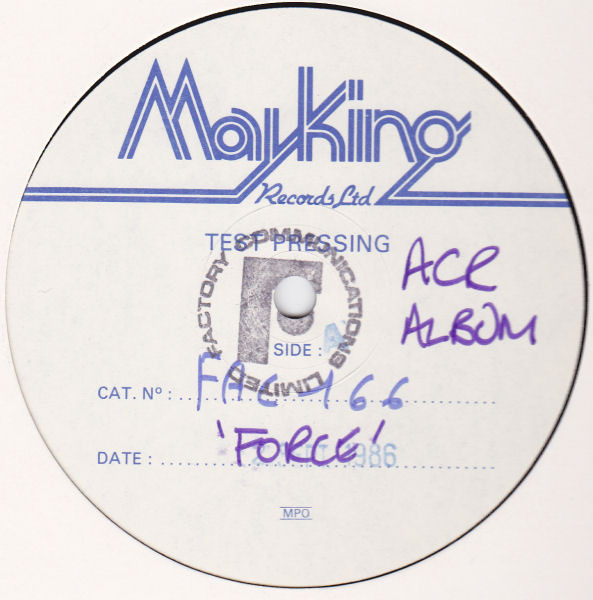 Mayking
Records Ltd
TEST PRESSING
FACTORY COMMUNICATIONS LIMITED
ACR
ALBUM
SIDE : A
CAT. Nº : FAC 166
'FORCE'
DATE : 1986
MPO